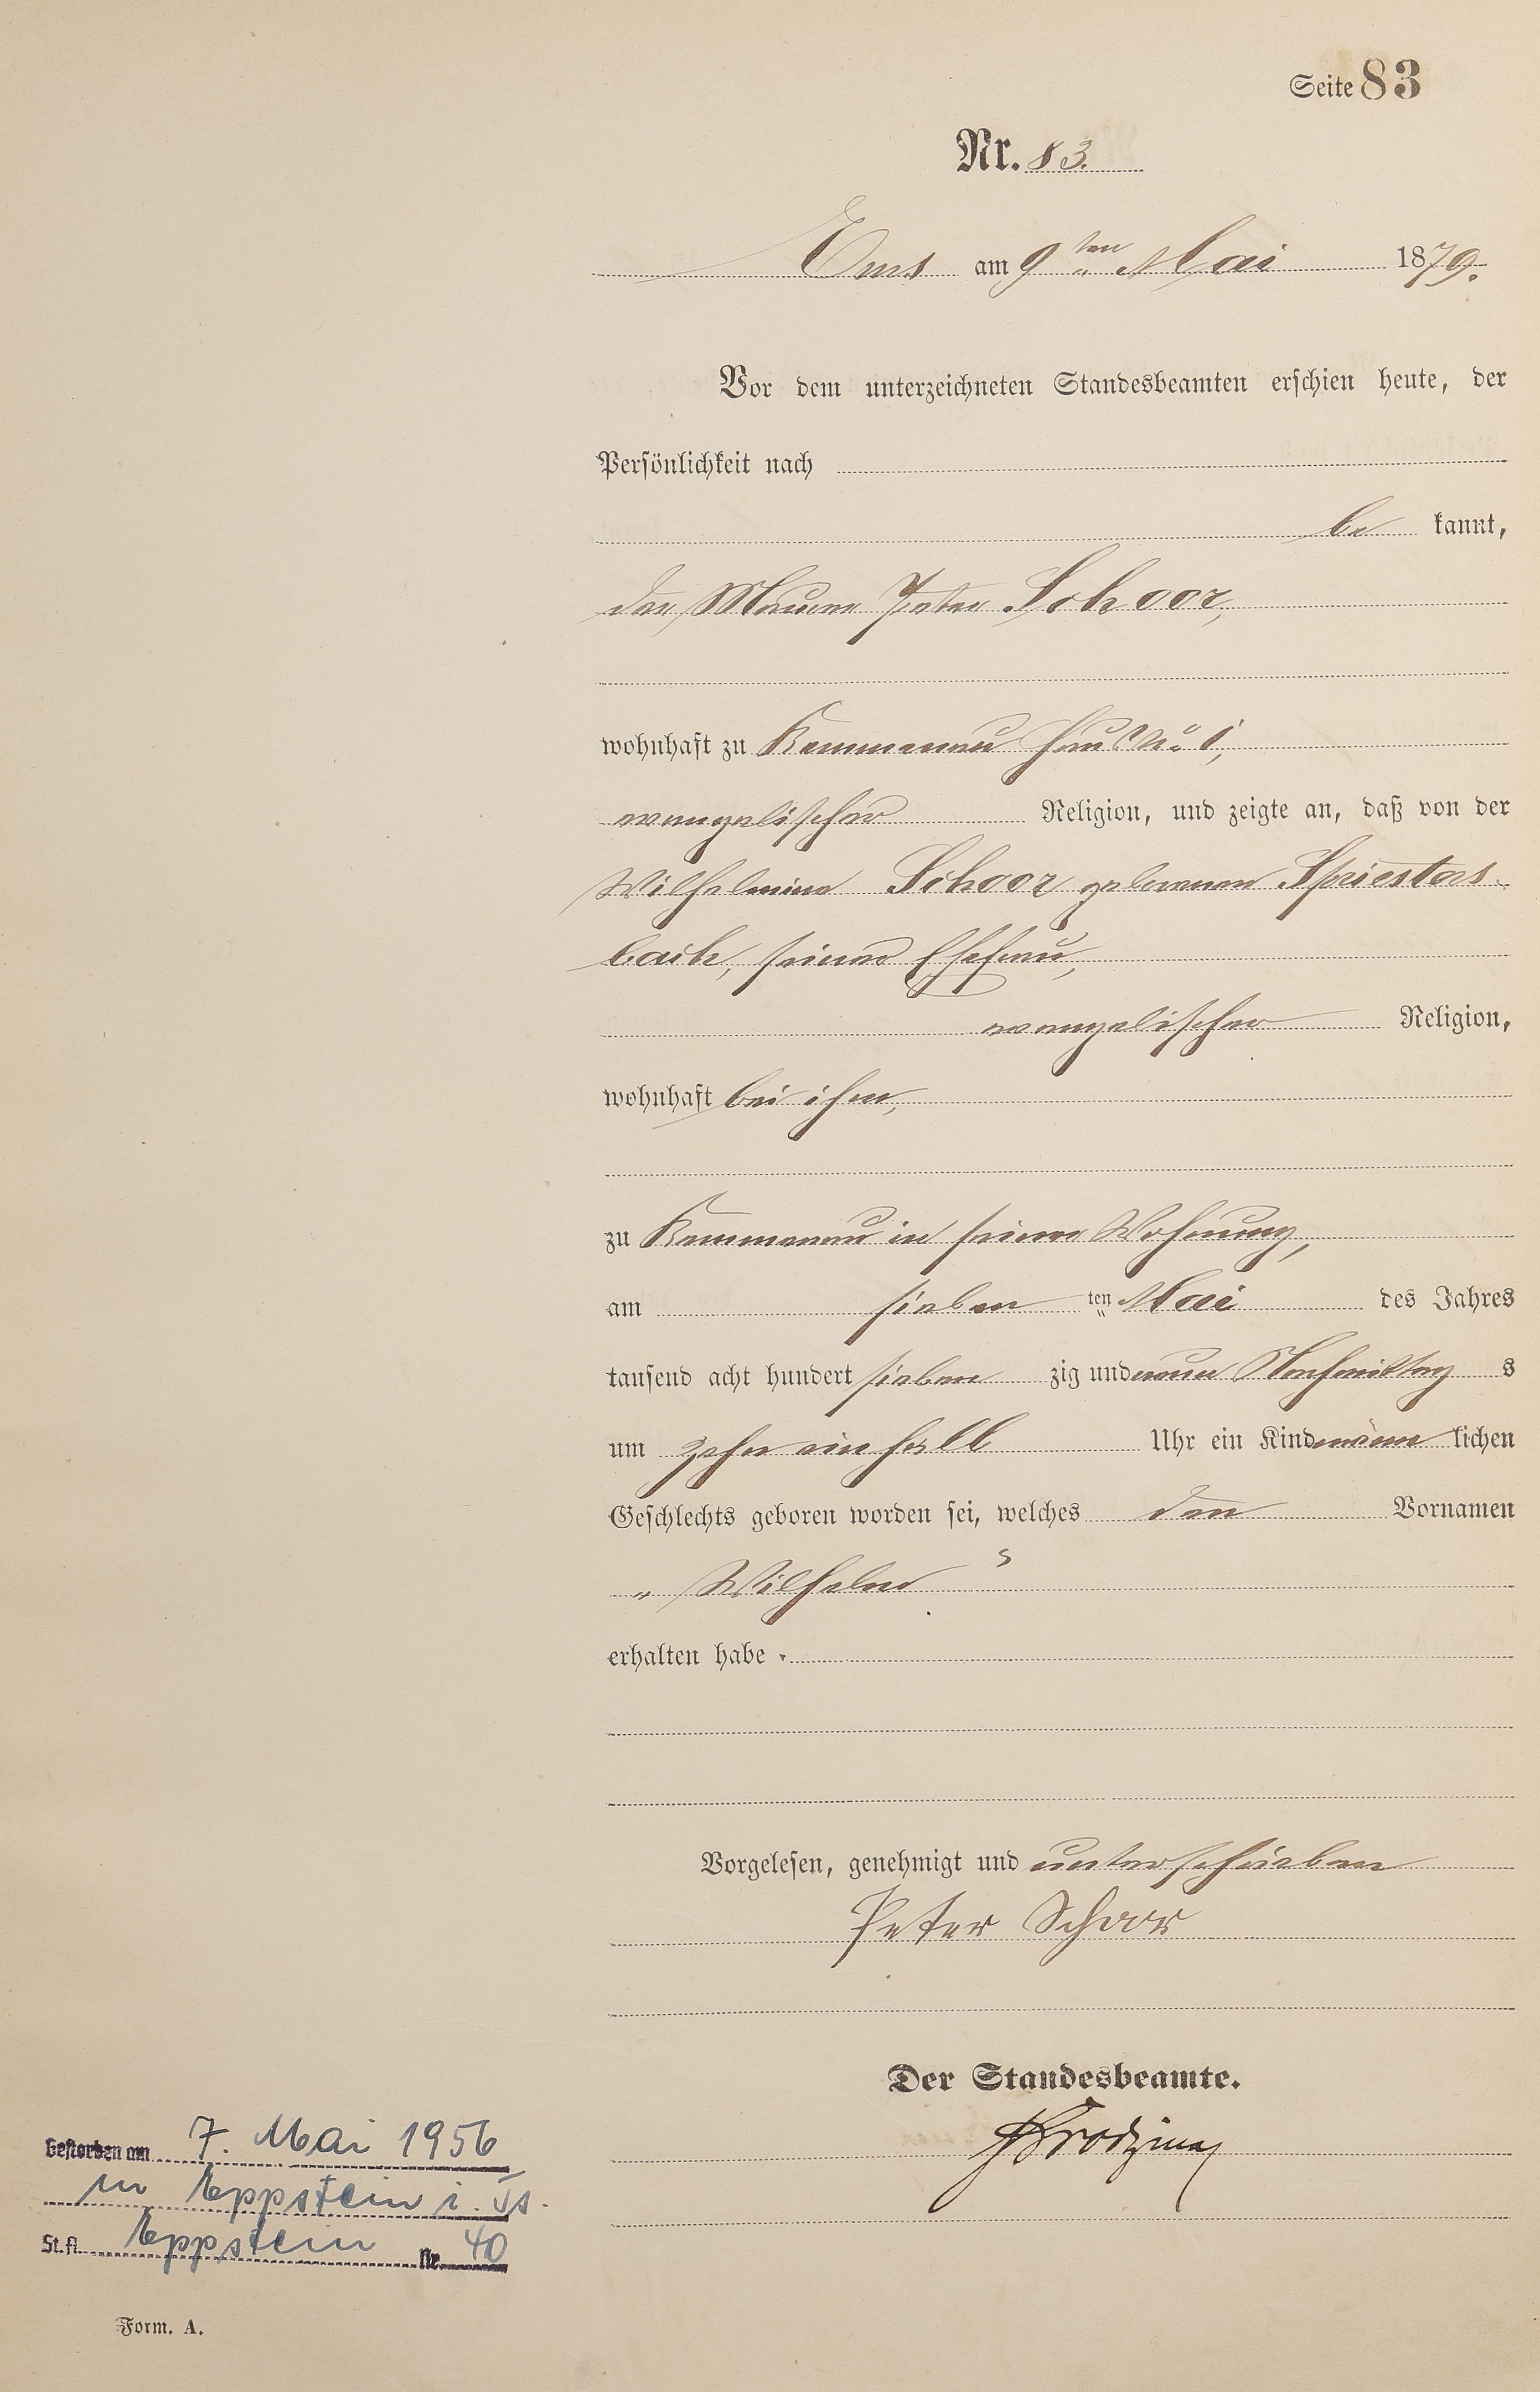 Seite 83
Nr. 83.
Ems am 9ten Mai 1879.
Vor dem unterzeichneten Standesbeamten erschien heute, der
Persönlichkeit nach
be kannt,
der Maurer Peter Schoor,
wohnhaft zu Kemmenau Haus No 1,
evangelischer Religion, und zeigte an, daß von der
Wilhelmine Schoor geborenen Spriesters-
bach, seiner Ehefrau,
evangelischer Religion,
wohnhaft bei ihm,
zu Kemmenau in seiner Wohnung,
am sieben ten Mai des Jahres
tausend acht hundert sieben zig und neun Nachmittag s
um zehn ein halb Uhr ein Kind männ lichen
Geschlechts geboren worden sei, welches den Vornamen
„ Wilhelm “
erhalten habe.
Vorgelesen, genehmigt und unterschrieben
Peter Schoor
Der Standesbeamte.
Gestorben am 7. Mai 1956
in Eppstein i. Ts.
St.A. Eppstein Nr. 40
Form. A.